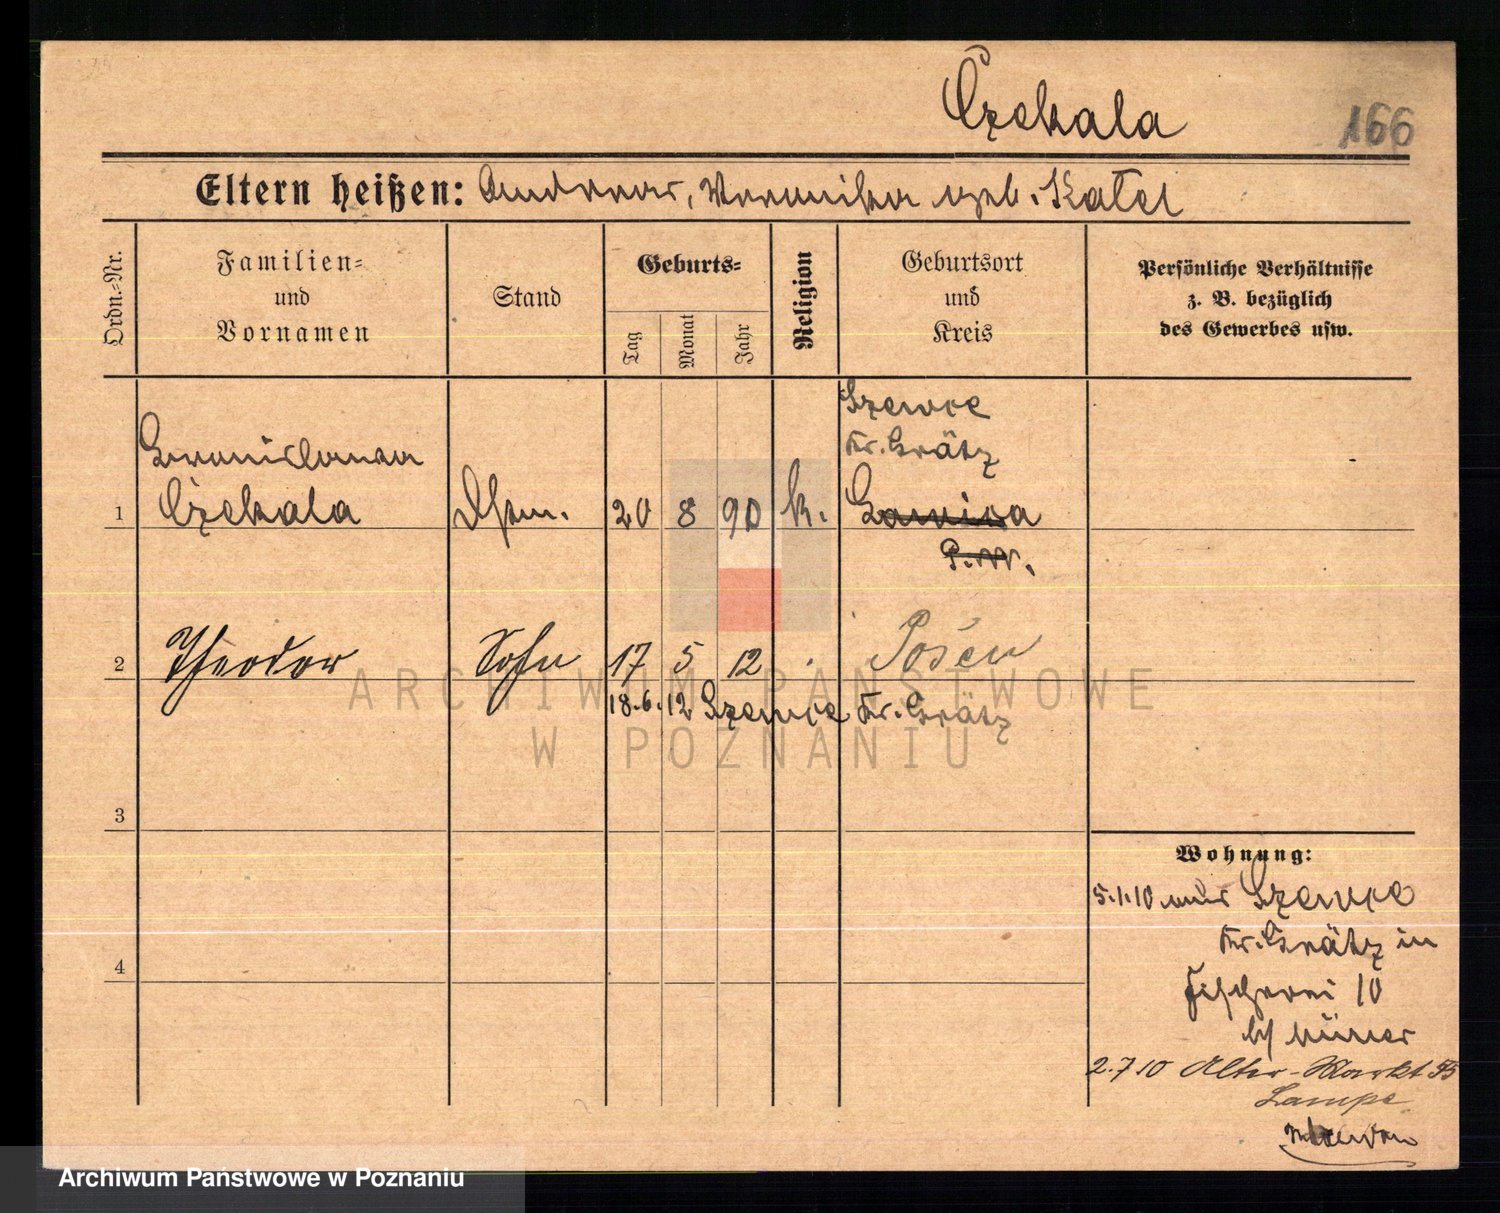 Czekala
166
Eltern heißen: Andreas, Veronika geb. Katei
Ordn.-Nr.
Familien-
und
Vornamen
Stand
Geburts-
Tag
Monat
Jahr
Religion
Geburtsort
und
Kreis
Persönliche Verhältnisse
z. B. bezüglich
des Gewerbes usw.
Szewce
Kr. Grätz
Bronislawa
1 Czekala 20 8 90 k.
P.W.
2 Theodor Sohn 17 5 12 Posen
18.6.12 Szewce Kr. Grätz
3
Wohnung:
5.1.10 aus Szewce
Kr. Grätz in
4
Fischerei 10
bei
2.7 10 Alter-Markt 55
Lampe
ARCHIWUM PAŃSTWOWE
W POZNANIU
Archiwum Państwowe w Poznaniu